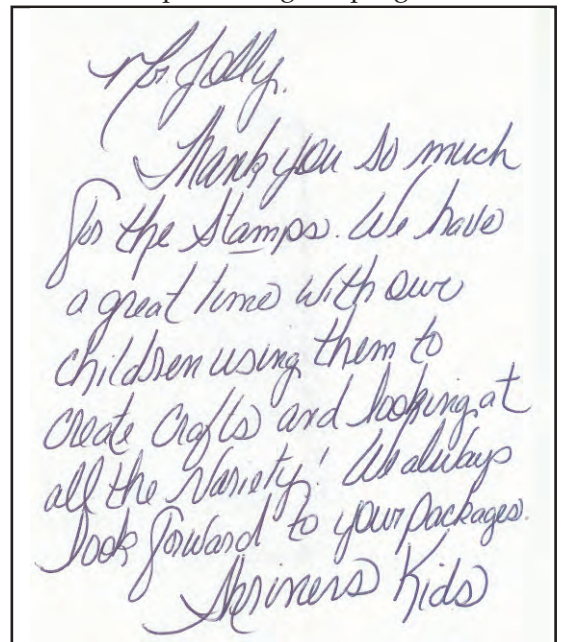 Mr. Jolly,
Thank you so much
for the Stamps. We have
a great time with our
children using them to
create crafts and looking at
all the Variety! We always
look forward to your packages.
Shriners Kids